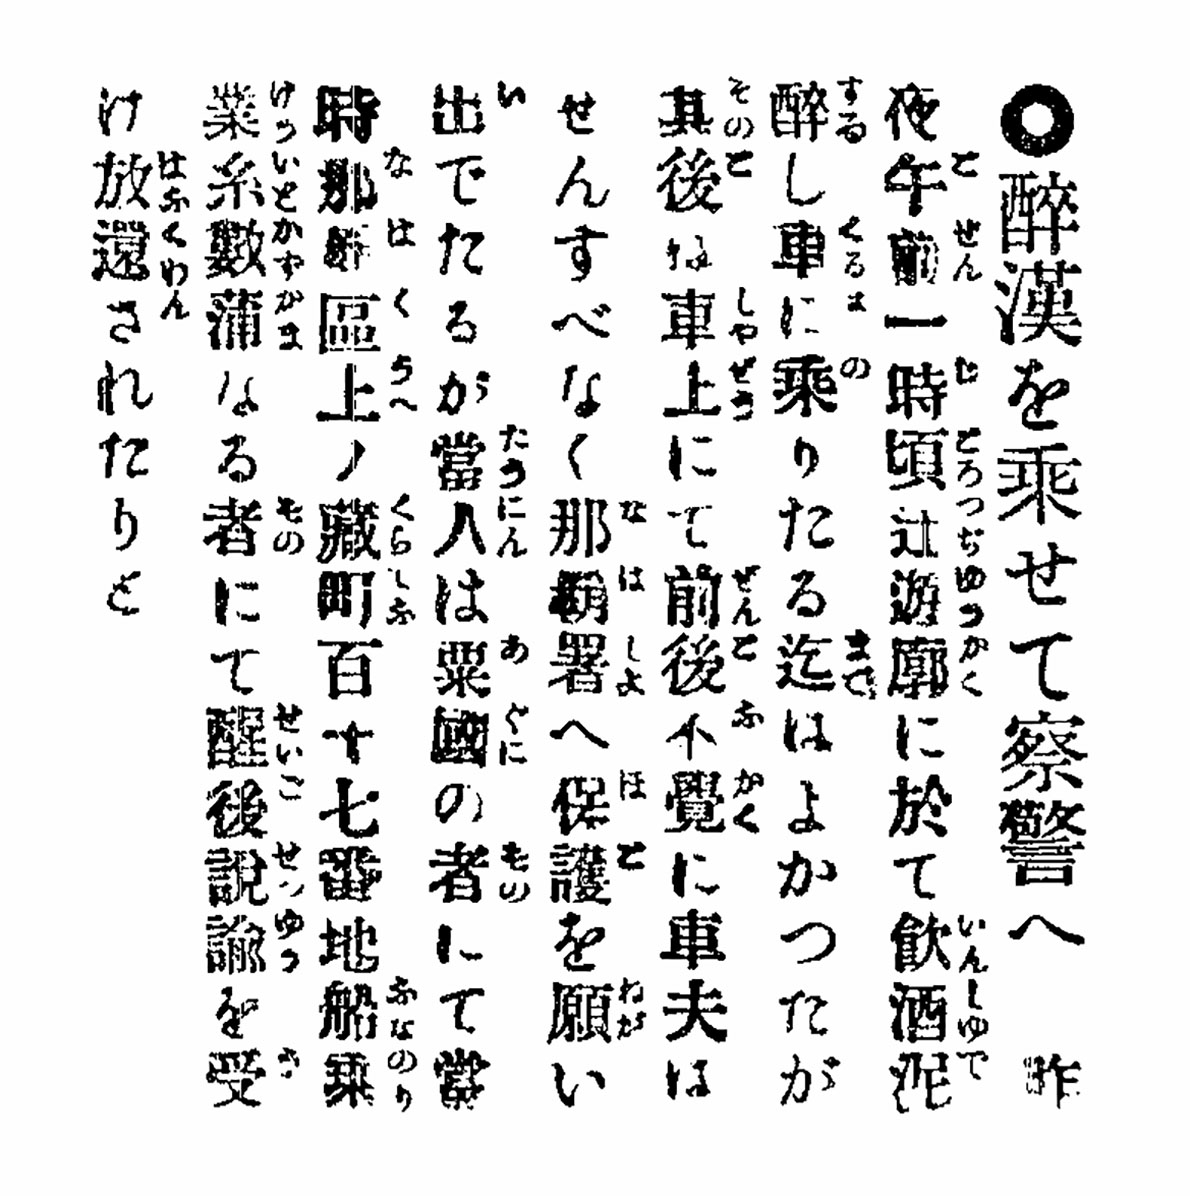 ◎醉漢を乘せて察警へ　昨
夜午前一時頃辻遊廓に於て飮酒泥
醉し車に乘りたる迄はよかつたが
其後は車上にて前後不覺に車夫は
せんすべなく那覇署へ保護を願い
出でたるが當人は粟國の者にて當
時那覇區上ノ藏町百十七番地船乘
業糸數蒲なる者にて醒後說諭を受
け放還されたりと